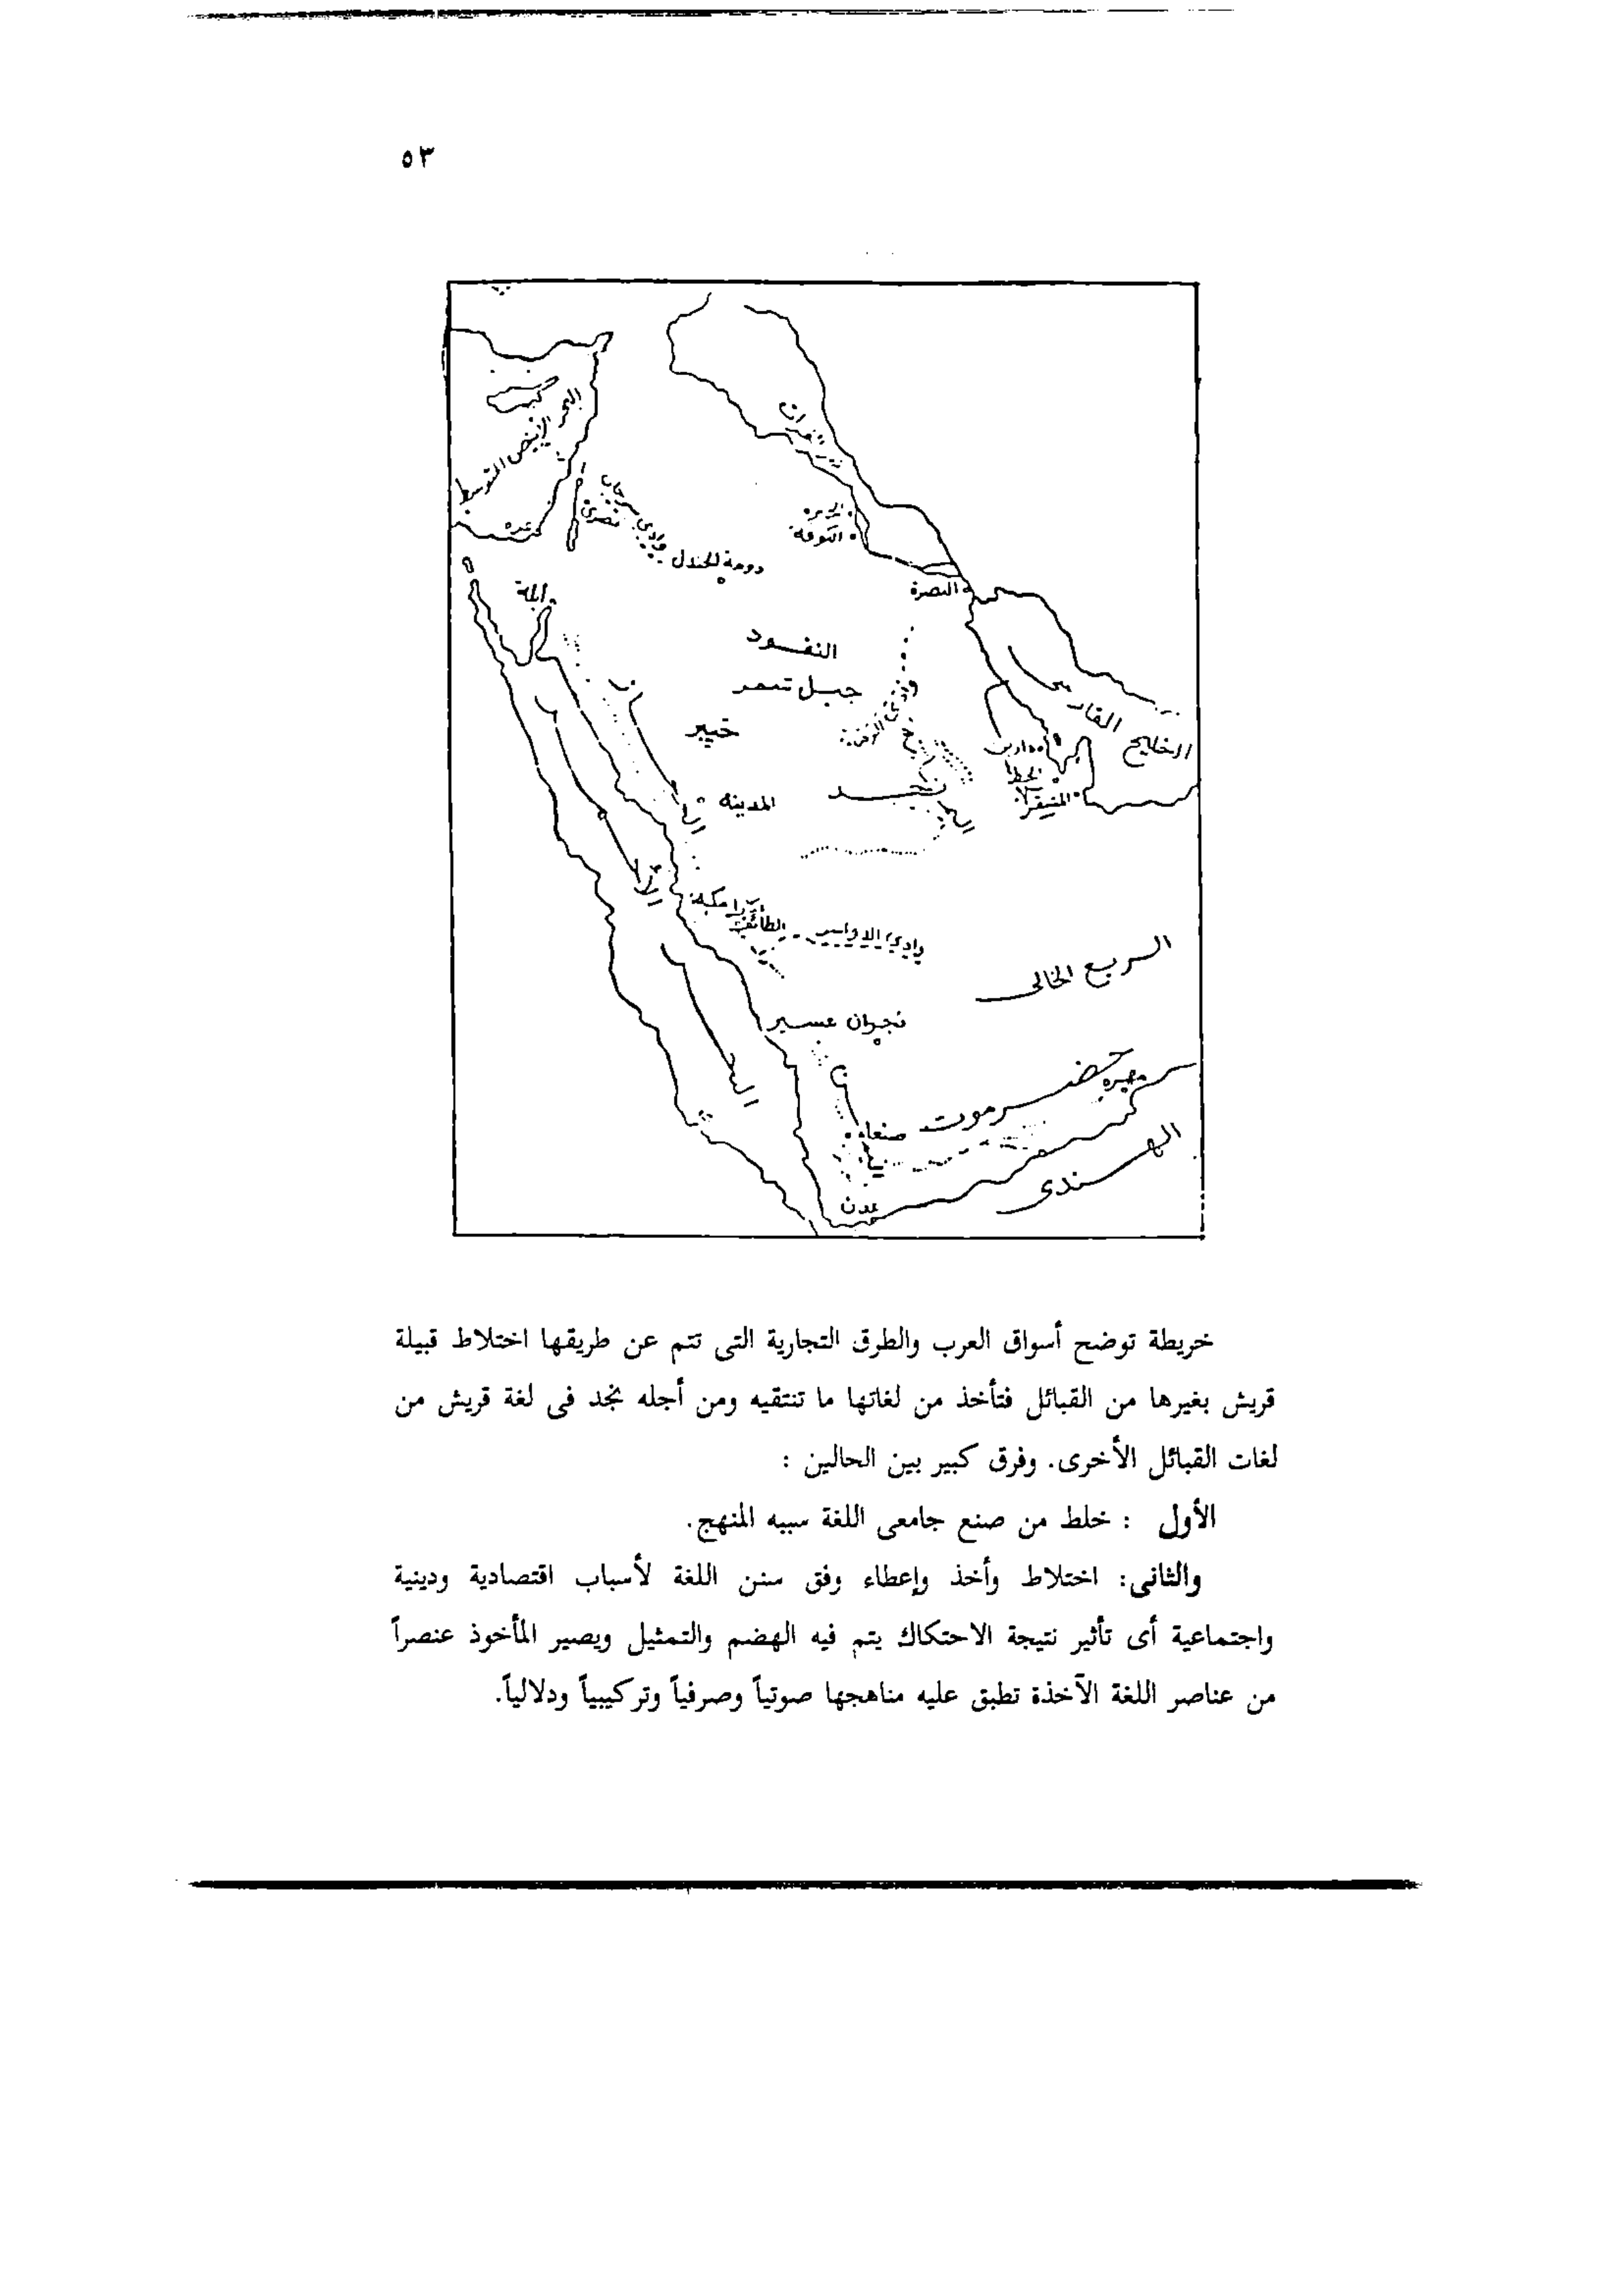 ٥٣
البحر الأبيض المتوسط
غزه
بصرى
وادى سرحان
دومة الجندل
الحيره
الكوفة
البصرة
أيلة
النفود
جبل شمر
خيبر
الخليج الفارسى
دارين
الخط
المشقر
نجد
المدينة
مكة
الطائف
وادى الدواسر
الربع الخالى
نجران عسير
حضرموت
مهره
صنعاء
الهندى
عدن
خريطة توضح أسواق العرب والطرق التجارية التى تتم عن طريقها اختلاط قبيلة
قريش بغيرها من القبائل فتأخذ من لغاتها ما تنتقيه ومن أجله نجد فى لغة قريش من
لغات القبائل الأخرى. وفرق كبير بين الحالين :
الأول : خلط من صنع جامعى اللغة سببه المنهج.
والثانى: اختلاط وأخذ وإعطاء وفق سنن اللغة لأسباب اقتصادية ودينية
واجتماعية أى تأثير نتيجة الاحتكاك يتم فيه الهضم والتمثيل ويصير المأخوذ عنصراً
من عناصر اللغة الآخذة تطبق عليه مناهجها صوتياً وصرفياً وتركيبياً ودلالياً.